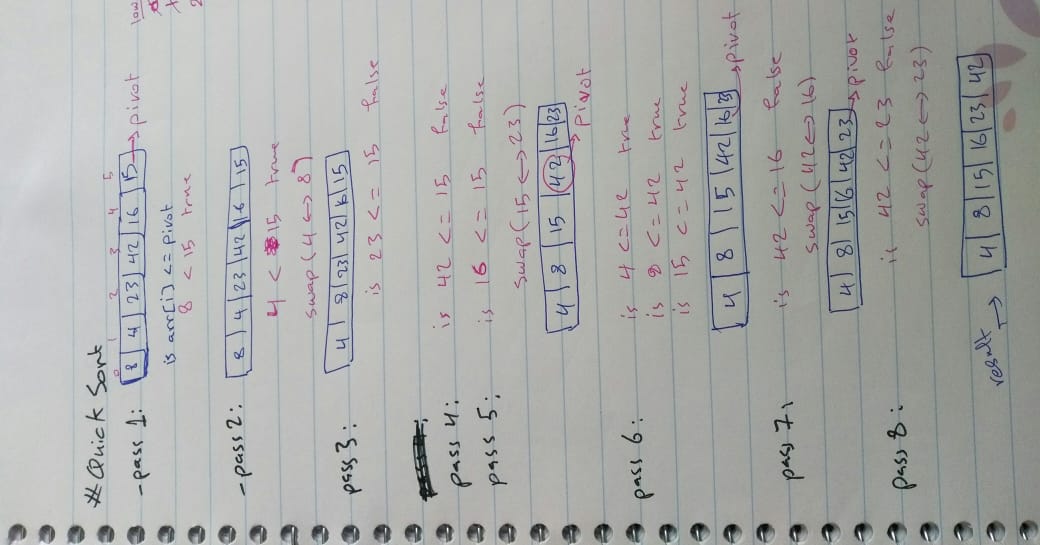 # Quick Sort
low
0 1 2 3 4 5
- pass 1: 8 | 4 | 23 | 42 | 16 | 15 → pivot
is arr[i] <= pivot
8 < 15 true
- pass 2: 8 | 4 | 23 | 42 | 16 | 15
4 < 15 true
swap (4 <-> 8)
pass 3: 4 | 8 | 23 | 42 | 16 | 15
is 23 <= 15 false
pass 4: is 42 <= 15 false
pass 5: is 16 <= 15 false
swap (15 <-> 23)
4 | 8 | 15 | 42 | 16 | 23
→ pivot
pass 6: is 4 <= 42 true
is 8 <= 42 true
is 15 <= 42 true
4 | 8 | 15 | 42 | 16 | 23 → pivot
pass 7: is 42 <= 16 false
swap (42 <-> 16)
4 | 8 | 15 | 16 | 42 | 23 → pivot
pass 8: is 42 <= 23 false
swap (42 <-> 23)
result → 4 | 8 | 15 | 16 | 23 | 42